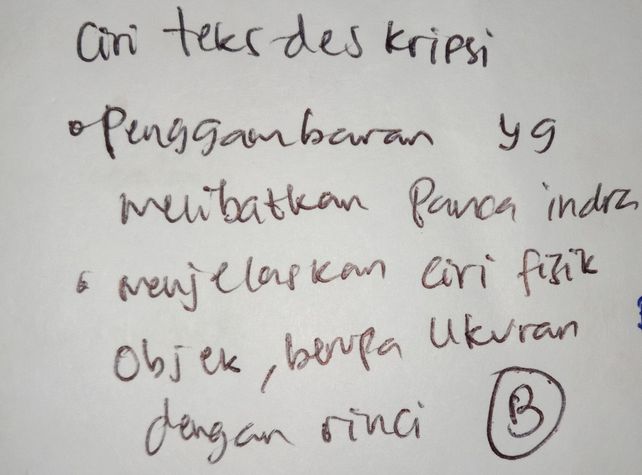 Ciri teks deskripsi
• Penggambaran yg
melibatkan Panca indra
• menjelaskan ciri fisik
Objek, berupa Ukuran
dengan rinci B